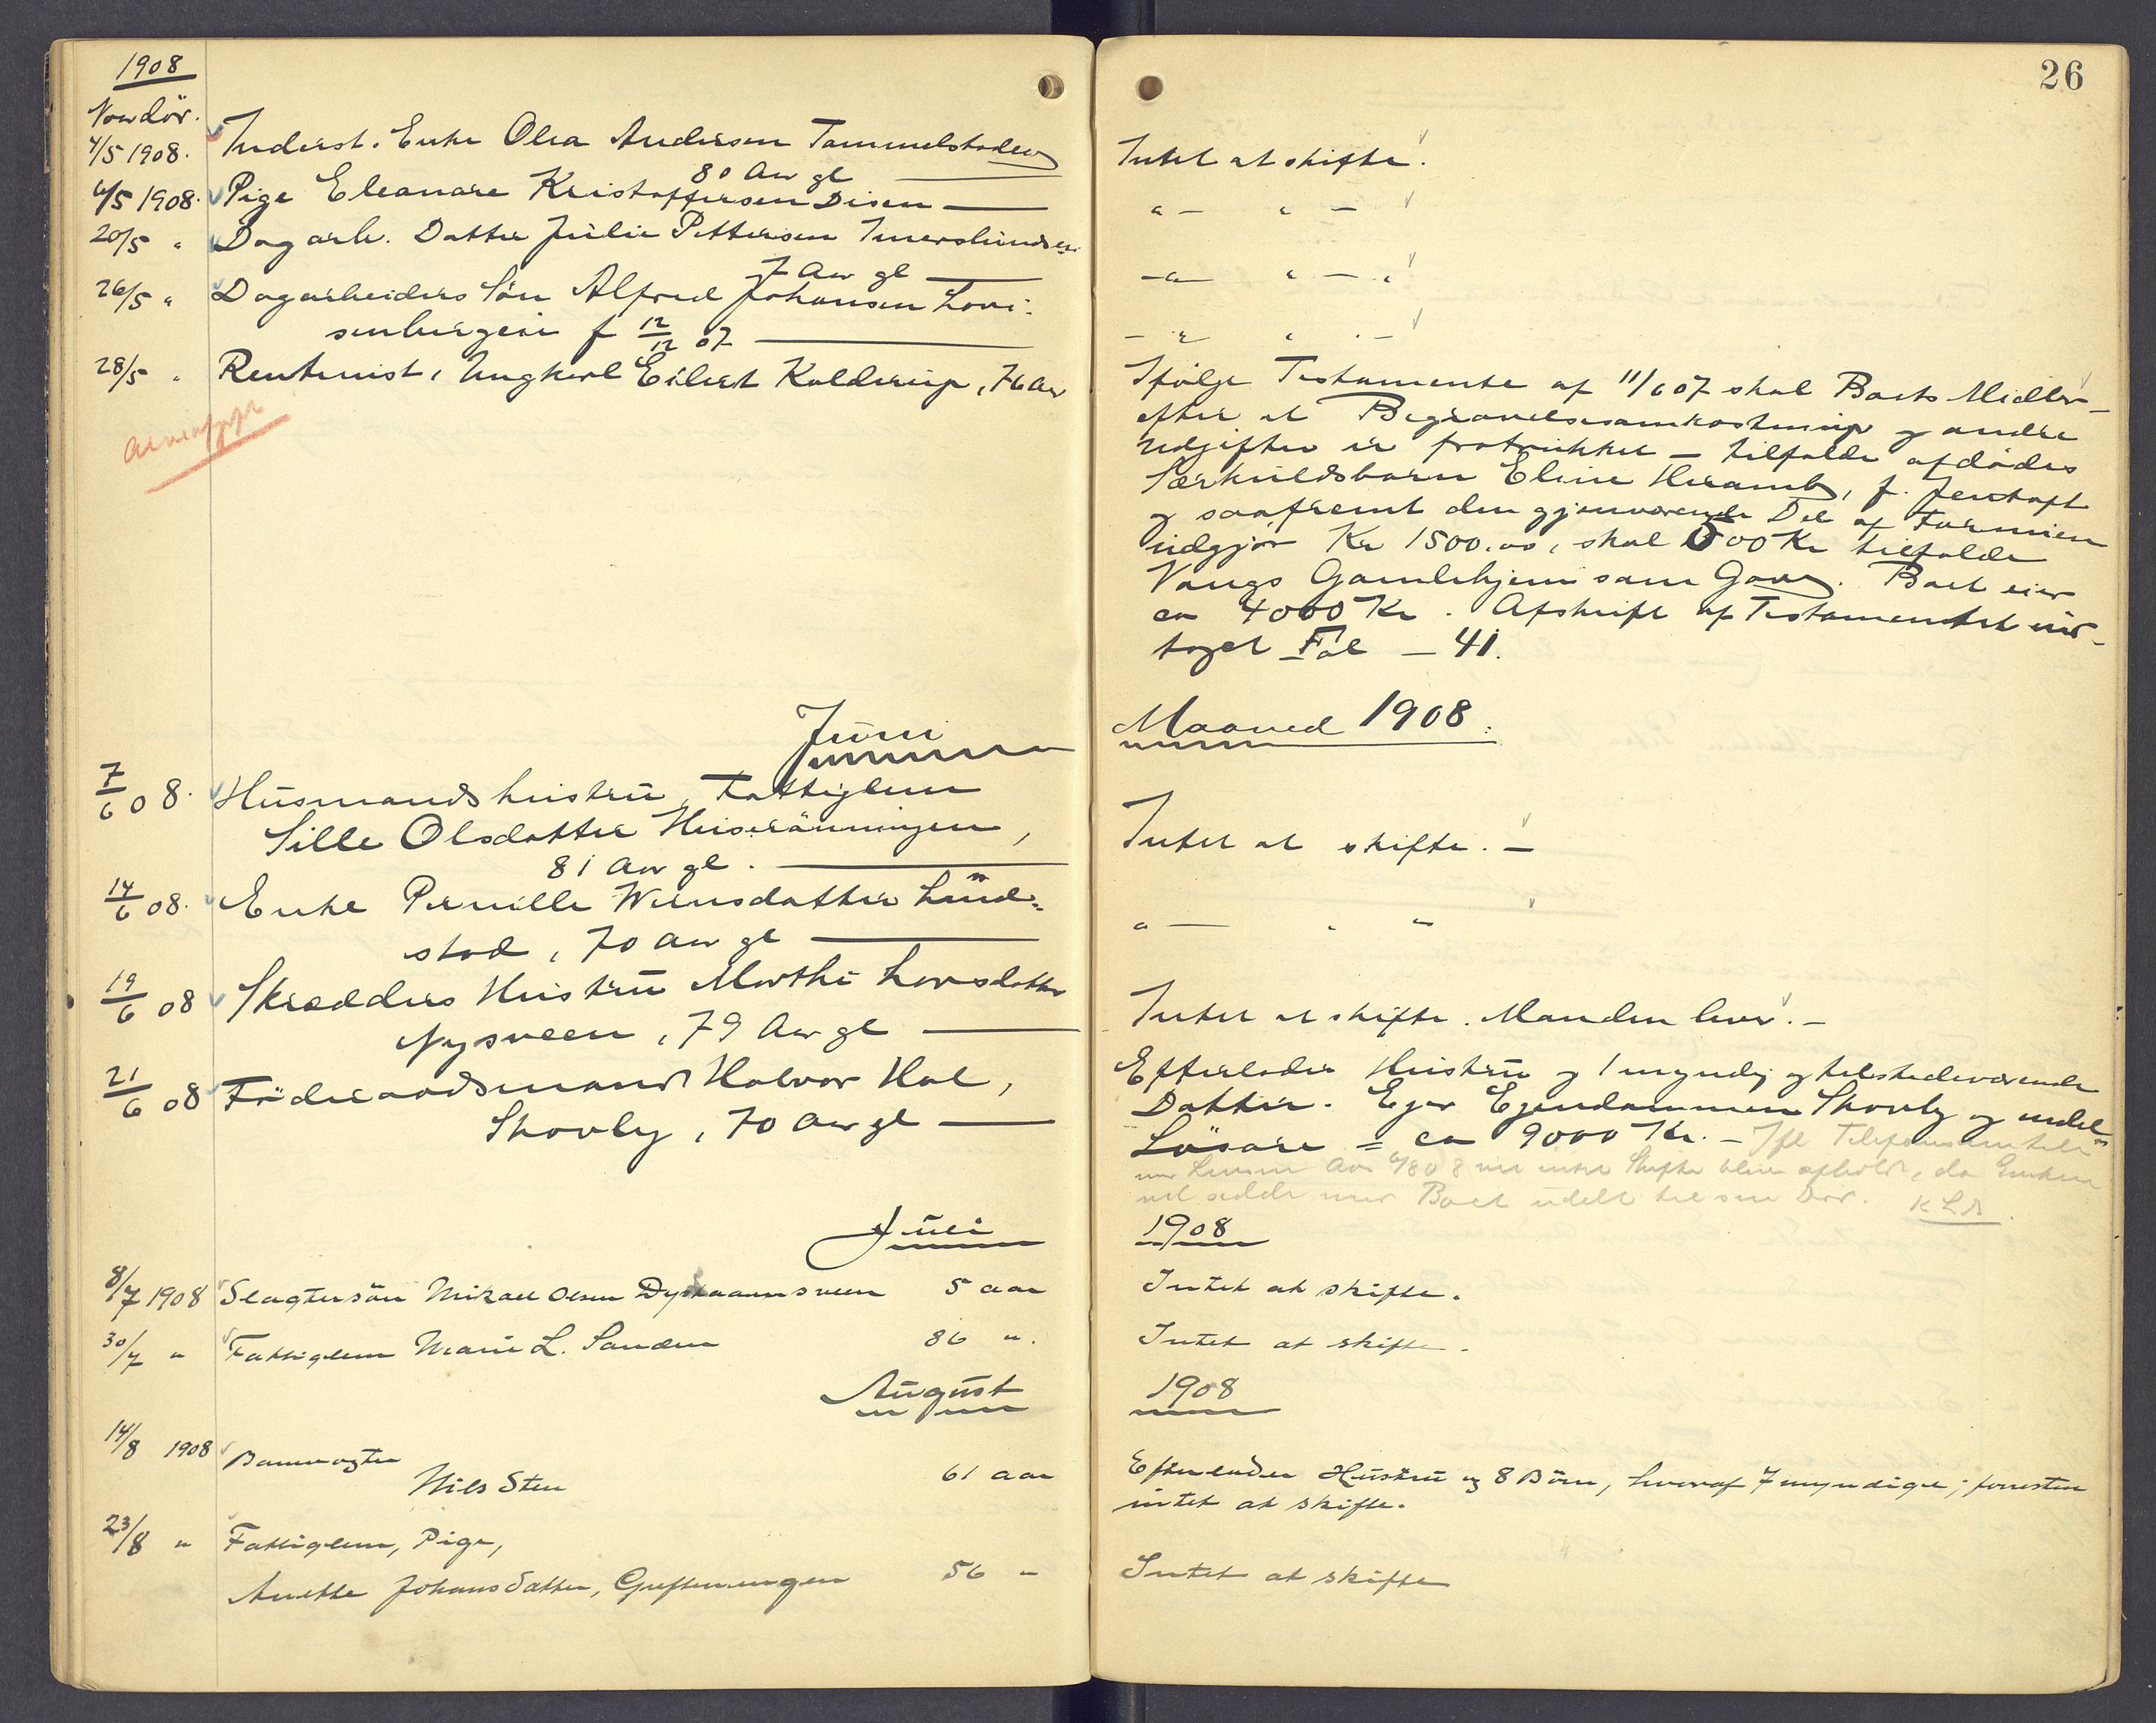 1908
26
Naar dör.
4/5 1908. Inderst. Enke Olea Andersen Tommelstadeie
80 Aar gl
Intet at skifte.
6/5 1908. Pige Eleanore Kristoffersen Disen
" — " —
20/5 " Dagarb. Datter Julie Pettersen Imerslundseie
7 Aar gl
— " — " — "
26/5 " Dagarbeiders Sön Alfred Johansen Lovi-
senbergeie f 12/12 07
— " — " —
28/5 " Rentenist, Ungkarl Eilert Kolderup, 76 Aar
Ifölge Testamente af 11/6 07 skal Boets Midler —
efter at Begravelsesomkostninger og andre
Udgifter er fratrukket — tilfalde afdödes
Særkuldsbarn Eline Heramb, f. Jentoft
og saafremt den gjenværende Del af Formuen
udgjör Kr 1500.00, skal 500 Kr tilfalde
Vangs Gamlehjem som Gave. Boet eier
ca 4000 Kr. Afskrift af Testamentet ind-
taget Fol — 41.
Juni
Maaned 1908.
7/6 08. Husmandshustru, Fattiglem
Sille Olsdatter Huserönningen,
81 Aar gl.
Intet at skifte. —
14/6 08. Enke Pernille Wernsdatter Lund-
stad, 70 Aar gl
" — " "
19/6 08 Skrædders Hustru Marthe Larsdatter
Nysveen, 79 Aar gl
Intet at skifte. Manden lever. —
21/6 08 Föderaadsmand Halvor Hol,
Skovly, 70 Aar gl
Efterlader Hustru og 1 myndig og tilstedeværende
Datter. Eier Eiendommen Skovly og endel
Lösöre = ca 9000 Kr. — Ifl Telefonsamtale
Lensm 08 vil intet Skifte blive afholdt, da Enken
vil sidde med Boet udelt til sin Död. KLA
Juli
1908
8/7 1908 Slagtersön Mikael Olsen Dystaamsveen 5 aar
Intet at skifte.
30/7 " Fattiglem Marie L. Sanden 86 ".
Intet at skifte.
August
1908
14/8 1908 Banevogter
Nils Sten 61 aar
Efterlader Hustru og 8 Börn, hvoraf 7 myndige; forresten
intet at skifte.
23/8 " Fattiglem, Pige,
Anette Johansdatter, Greftenengen 56 "
Intet at skifte